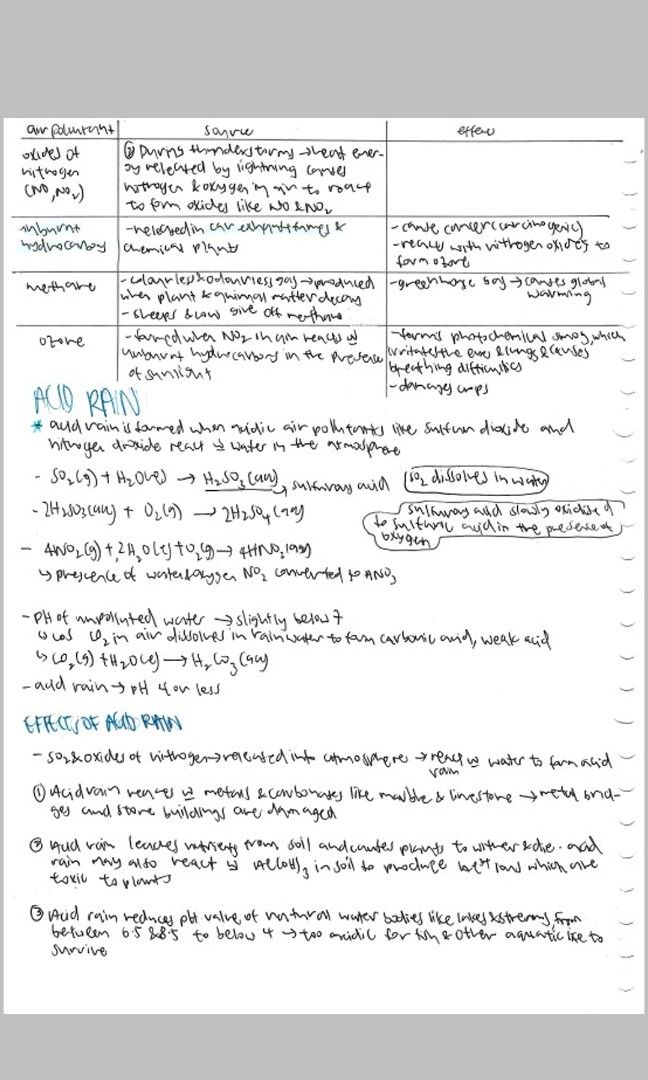 air pollutant source effect
oxides of
nitrogen
(NO, NO₂)
② During thunderstorms → heat ener-
gy released by lightning causes
nitrogen & oxygen in air to react
to form oxides like NO & NO₂
unburnt
hydrocarbon
- released in car exhaust fumes &
chemical plants
- cause cancer (carcinogenic)
- reacts with nitrogen oxides to
form ozone
methane
- colourless & odourless gas → produced
when plant & animal matter decay
- sheeps & cow give off methane
- greenhouse gas → causes global
warming
ozone
- formed when NO₂ in air reacts w
unburnt hydrocarbons in the presence
of sunlight
- forms photochemical smog, which
irritates the eyes & lungs & causes
breathing difficulties
- damages crops
ACID RAIN
* acid rain is formed when acidic air pollutants like sulfur dioxide and
nitrogen dioxide react w water in the atmosphere
- SO₂(g) + H₂O(l) → H₂SO₃(aq) → sulfurous acid (SO₂ dissolves in water)
- 2H₂SO₃(aq) + O₂(g) → 2H₂SO₄(aq)
sulfurous acid slowly oxidised
to sulfuric acid in the presence of
oxygen
- 4NO₂(g) + 2H₂O(l) + O₂(g) → 4HNO₃(aq)
↳ prescence of water & oxygen NO₂ converted to HNO₃
- pH of unpolluted water → slightly below 7
↳ cos CO₂ in air dissolves in rainwater to form carbonic acid, weak acid
↳ CO₂(g) + H₂O(l) → H₂CO₃(aq)
- acid rain → pH 4 or less
EFFECTS OF ACID RAIN
- SO₂ & oxides of nitrogen → released into atmosphere → react w water to form acid
rain
① Acid rain reacts w metals & carbonates like marble & limestone → metal brid-
ges and stone buildings are damaged
② Acid rain leaches nutrients from soil and causes plants to wither & die. acid
rain may also react w Al(OH)₃ in soil to produce ions which are
toxic to plants
③ Acid rain reduces pH value of natural water bodies like lakes & streams from
between 6.5 & 8.5 to below 4 → too acidic for fish & other aquatic life to
survive